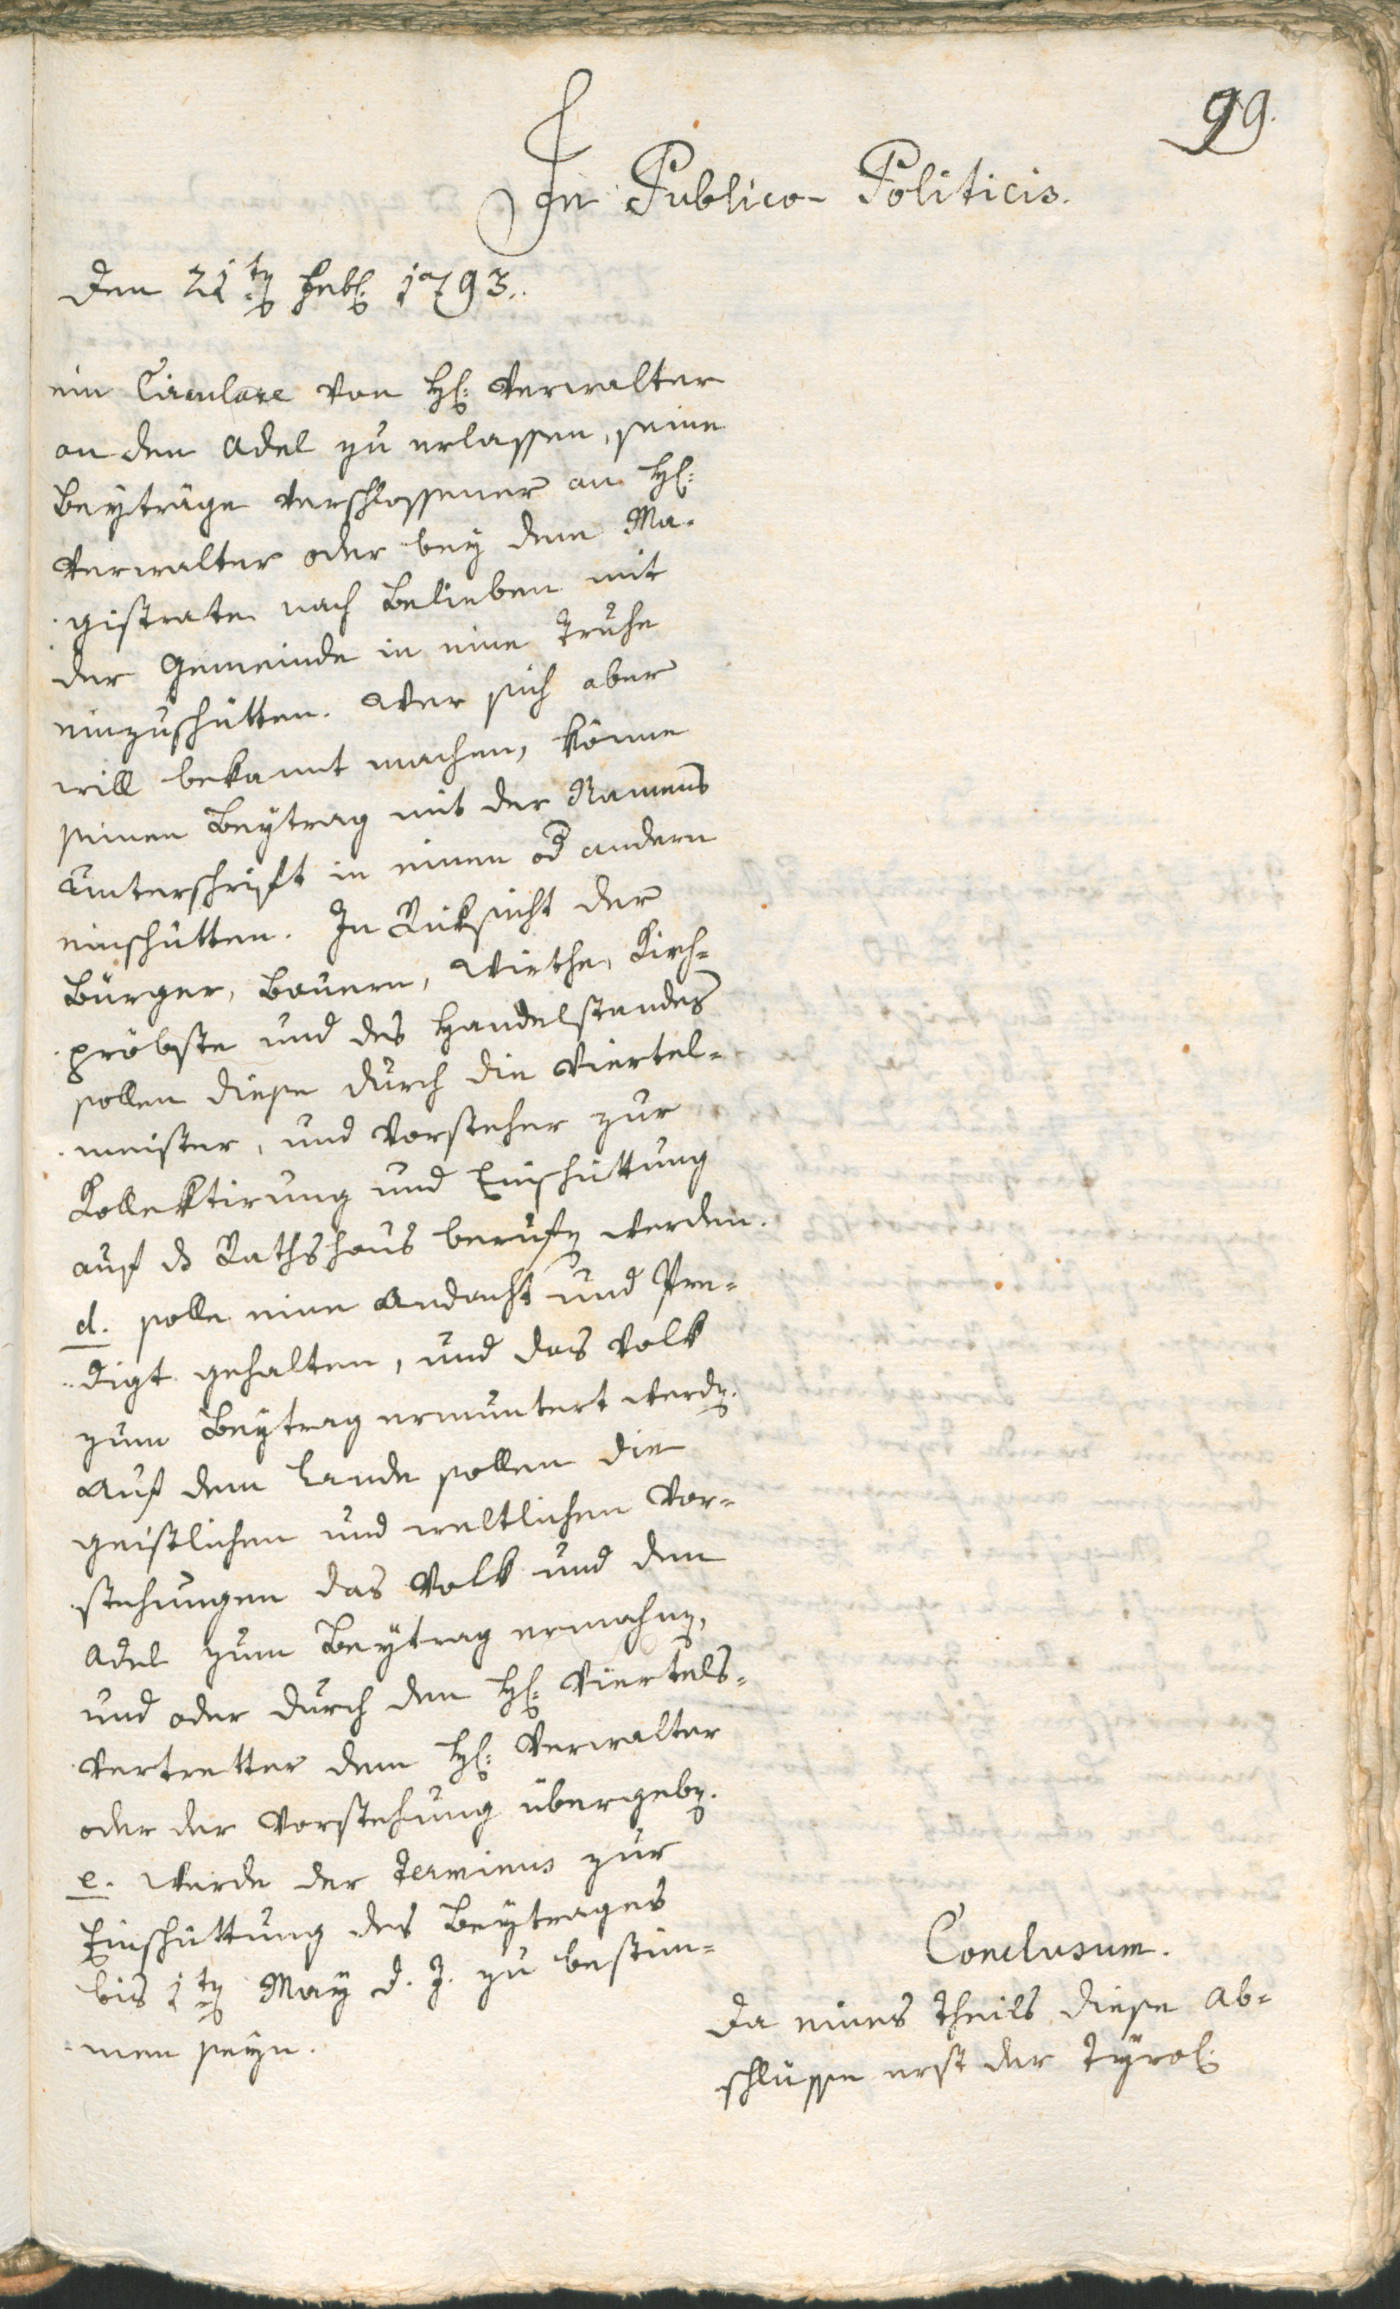 99.
In Publico-Politicis.
Den 21ten Feb: 1793..
ein Circulare von H: Verwalter
an den Adel zu erlassen, seine
Beyträge verschlossener an H:
Verwalter oder bey dem Ma-
gistrate nach Belieben mit
der Gemeinde in eine Truhe
einzuschütten. Wer sich aber
will bekannt machen, könne
seinen Beytrag mit der Namens
Unterschrift in einen od andern
einschütten. In Rüksicht der
Bürger, Bauern, Wirthe, Kirch-
pröbste und des Handelstandes
sollen diese durch die Viertel-
meister, und Vorsteher zur
Kollektirung und Einschüttung
auf ds Rathshaus berufen werden.
d. solle eine Andacht und Pre-
digt gehalten, und das Volk
zum Beytrag ermuntert werden.
Auf dem Lande sollen die
geistlichen und weltlichen Vor-
stehungen das Volk und den
Adel zum Beytrag ermahnen,
und oder durch den H: Viertels-
vertretter dem H: Verwalter
oder der Vorstehung übergeben.
e. Werde der Terminus zur
Einschüttung des Beytrages
bis 1ten May d. J. zu bestim-
men seyn.
Conclusum.
Da eines Theils diese Ab-
schlüsse erst der Tyrol: